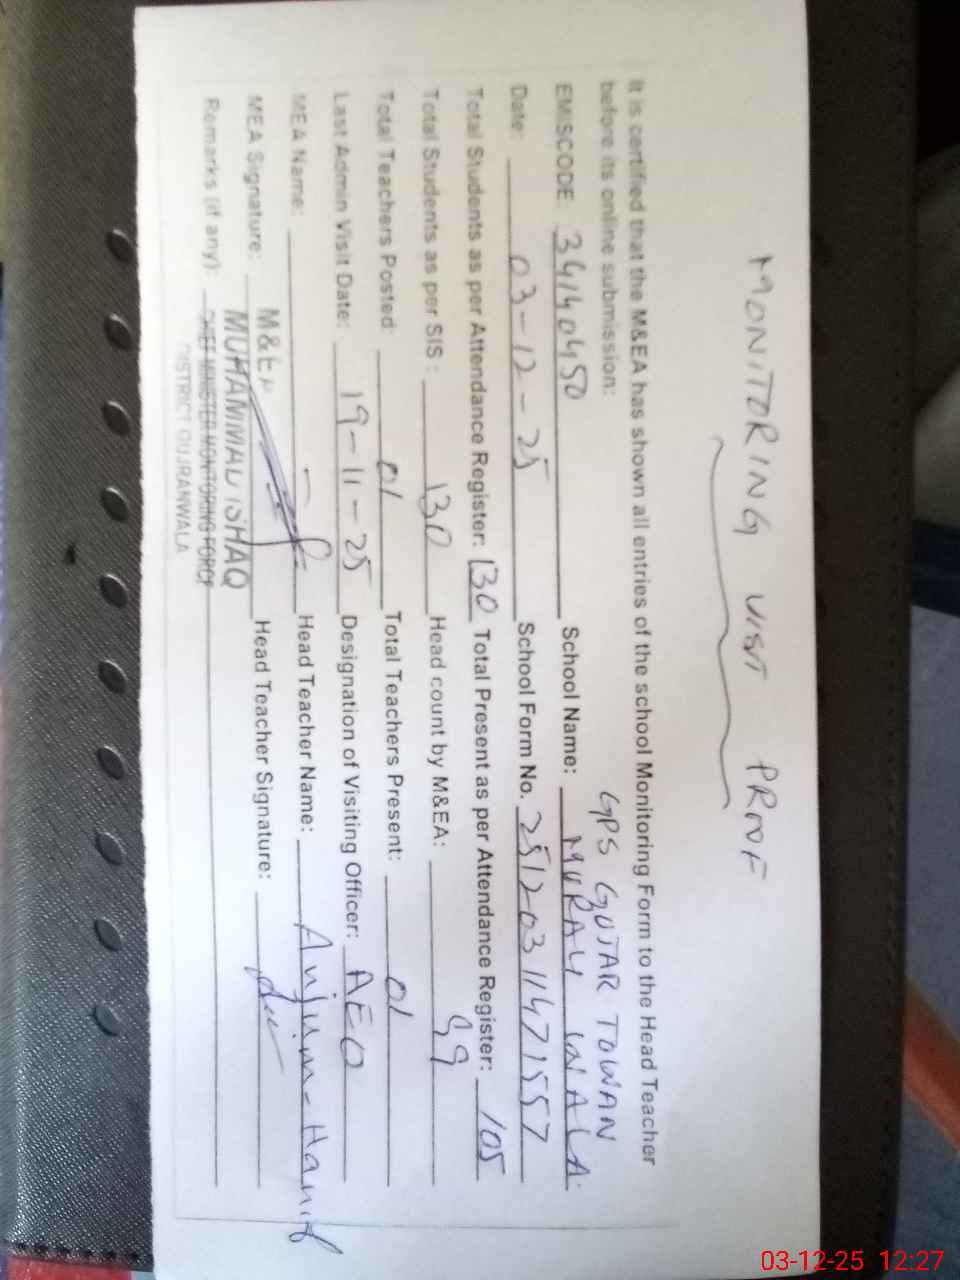 MONITORING VISIT PROOF
It is certified that the M&EA has shown all entries of the school Monitoring Form to the Head Teacher
before its online submission:
GPS GUJAR TOWAN
EMISCODE: 34140450 School Name: MURALI WALA.
Date: 03-12-25 School Form No. 25120311471557
Total Students as per Attendance Register: 130 Total Present as per Attendance Register: 105
Total Students as per SIS: 130 Head count by M&EA: 99
Total Teachers Posted: 01 Total Teachers Present: 01
Last Admin Visit Date: 19-11-25 Designation of Visiting Officer: AEO
MEA Name: Head Teacher Name: Anjum-Hanif
MEA Signature: Head Teacher Signature:
M&EA
MUHAMMAD ISHAQ
Remarks (if any): CHIEF MINISTER MONITORING FORCE
DISTRICT GUJRANWALA
03-12-25 12:27